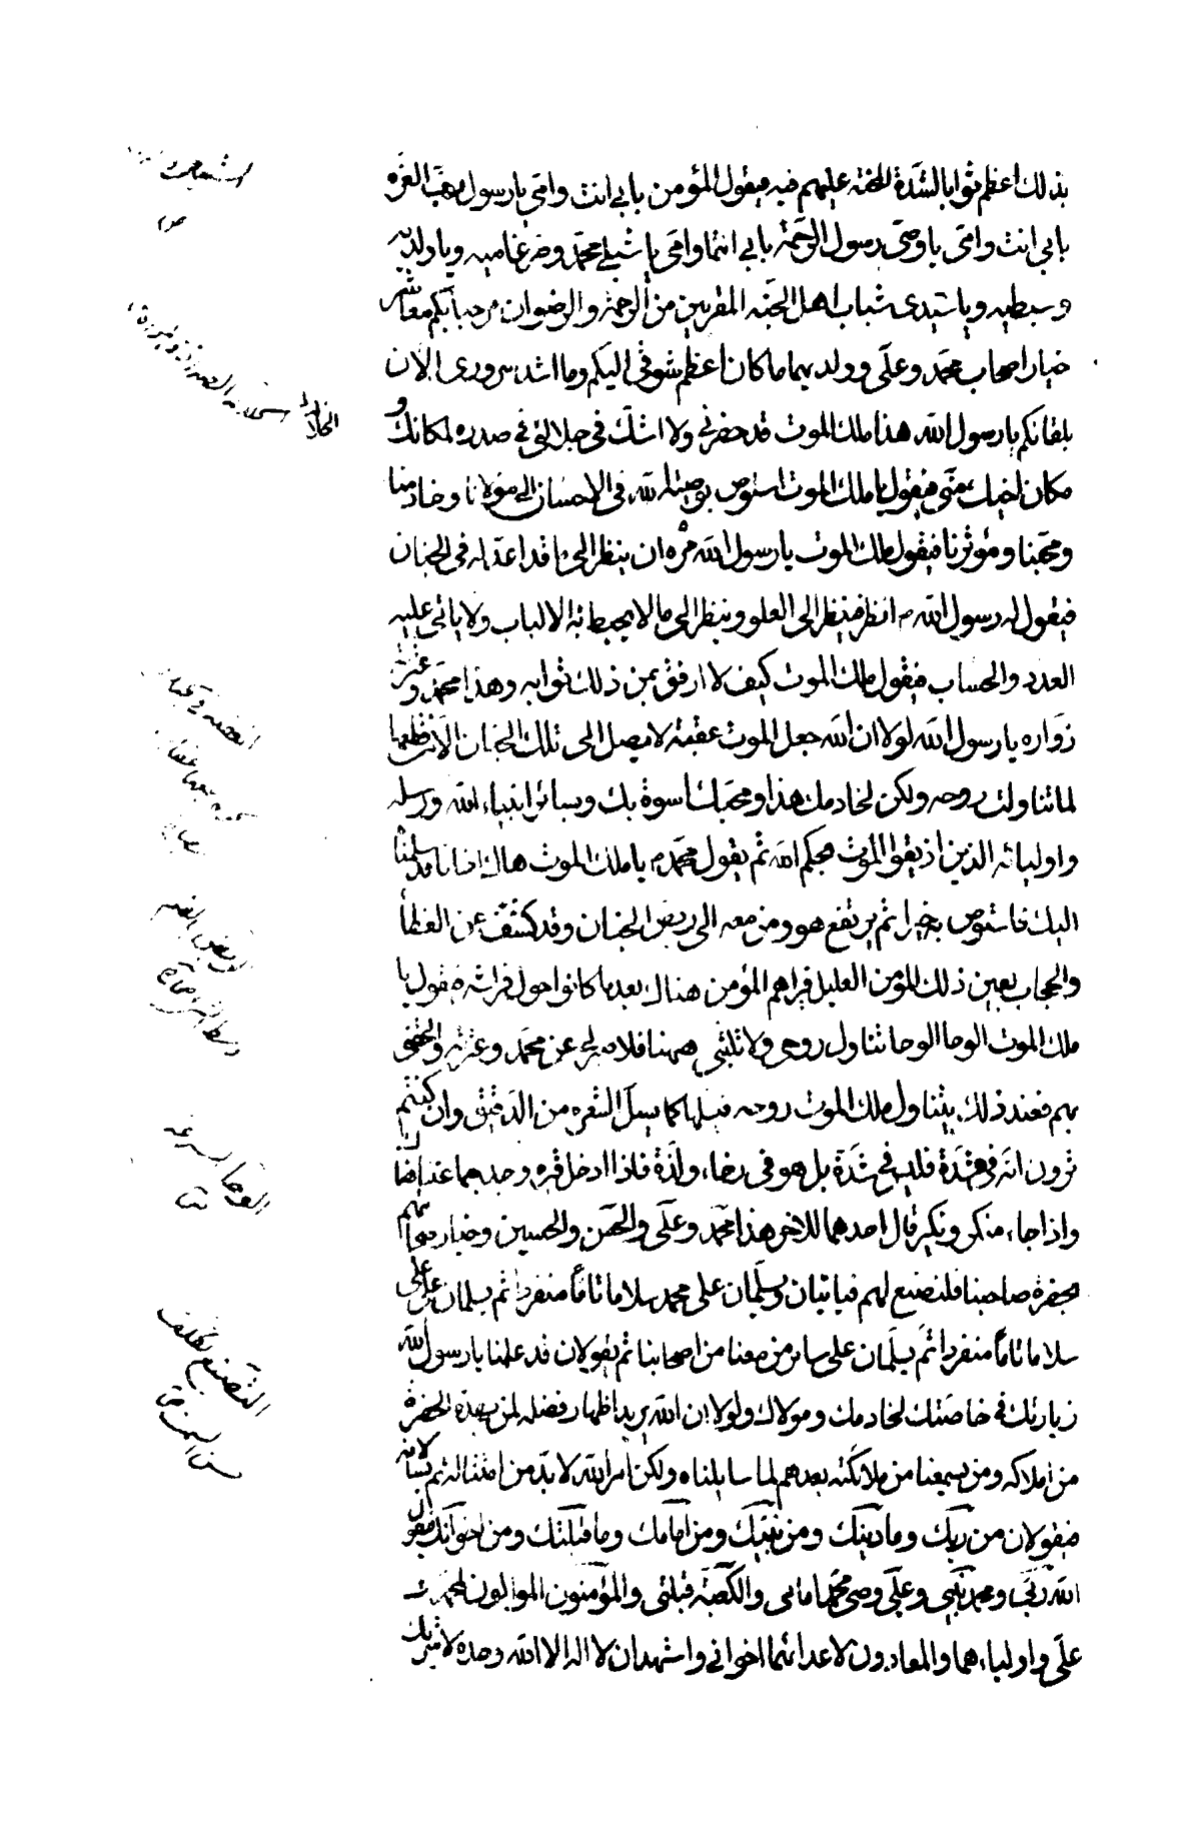 بذلك اعظم ثوابا لشدة المحنة عليهم فيه فيقول المؤمن بابي انت وامي يا رسول رب العزة
بابي انت وامي يا وصي رسول الرحمة بابي انتما وامي يا شبلي محمد وضرغاميه ويا ولديه
وسبطيه ويا سيدي شباب اهل الجنة المقربين من الرحمة والرضوان مرحبا بكم معاشر
خيار اصحاب محمد وعلي وولديهما ما كان اعظم شوقي اليكم وما اشد سروري الان
بلقائكم يا رسول الله هذا ملك الموت قد حضرني ولا اشك في جلالتي في صدره لمكانك و
مكان اخيك مني فيقول يا ملك الموت استوص بوصية الله في الاحسان الى مولانا وخادمنا
ومحبنا ومؤثرنا فيقول ملك الموت يا رسول الله مره ان ينظر الى ما قد اعد له في الجنان
فيقول له رسول الله ص انظر فينظر الى العلو وينظر الى ما لا يحيط به الالباب ولا ياتي عليه
العدد والحساب فيقول ملك الموت كيف لا ارفق بمن ذلك ثوابه وهذا محمد وعترته
زواره يا رسول الله لولا ان الله جعل الموت عقبة لا يصل الى تلك الجنان الا من قطعها
لما تناولت روحه ولكن لخادمك هذا ومحبك اسوة بك وبسائر انبياء الله ورسله
واوليائه الذين اذيقوا الموت بحكم الله ثم يقول محمد ص يا ملك الموت هاك اخانا قد سلمناه
اليك فاستوص به خيرا ثم يرتفع هو ومن معه الى ربض الجنان وقد كشف عن الغطا
والحجاب بعين ذلك المؤمن العليل فيراهم المؤمن هناك بعد ما كانوا حول فراشه فيقول يا
ملك الموت الوحا الوحا تناول روحي ولا تلبثني ههنا فلا صبر لي عن محمد وعترته والحقني
بهم فعند ذلك يتناول ملك الموت روحه فيسلها كما يسل الشعرة من الدقيق وان كنتم
ترون انه في شدة فليس في شدة بل هو في رخاء ولذة فاذا ادخل قبره وجد جماعتنا هناك
واذا جاء منكر ونكير قال احدهما للاخر هذا محمد وعلي والحسن والحسين وخيار صحابتهم
بحضرة صاحبنا فلنتضع لهم فياتيان ويسلمان على محمد سلاما تاما منفردا ثم يسلمان على علي
سلاما تاما منفردا ثم يسلمان على سائر من معنا من اصحابنا ثم يقولان قد علمنا يا رسول الله
زيارتك في خاصتك لخادمك ومولاك ولولا ان الله يريد اظهار فضله لمن بهذه الحضرة
من املاكه ومن يسمعنا من ملائكته بعدهم لما سايلناه ولكن امر الله لا بد من امتثاله ثم يسالانه
فيقولان من ربك وما دينك ومن نبيك ومن امامك وما قبلتك ومن اخوانك فيقول
الله ربي ومحمد نبيي وعلي وصي محمد امامي والكعبة قبلتي والمؤمنون الموالون لمحمد و
علي واوليائهما والمعادون لاعدائهما اخواني واشهد ان لا اله الا الله وحده لا شريك
الوحا السرعة
التصنع تكلف
حسن السمت ص